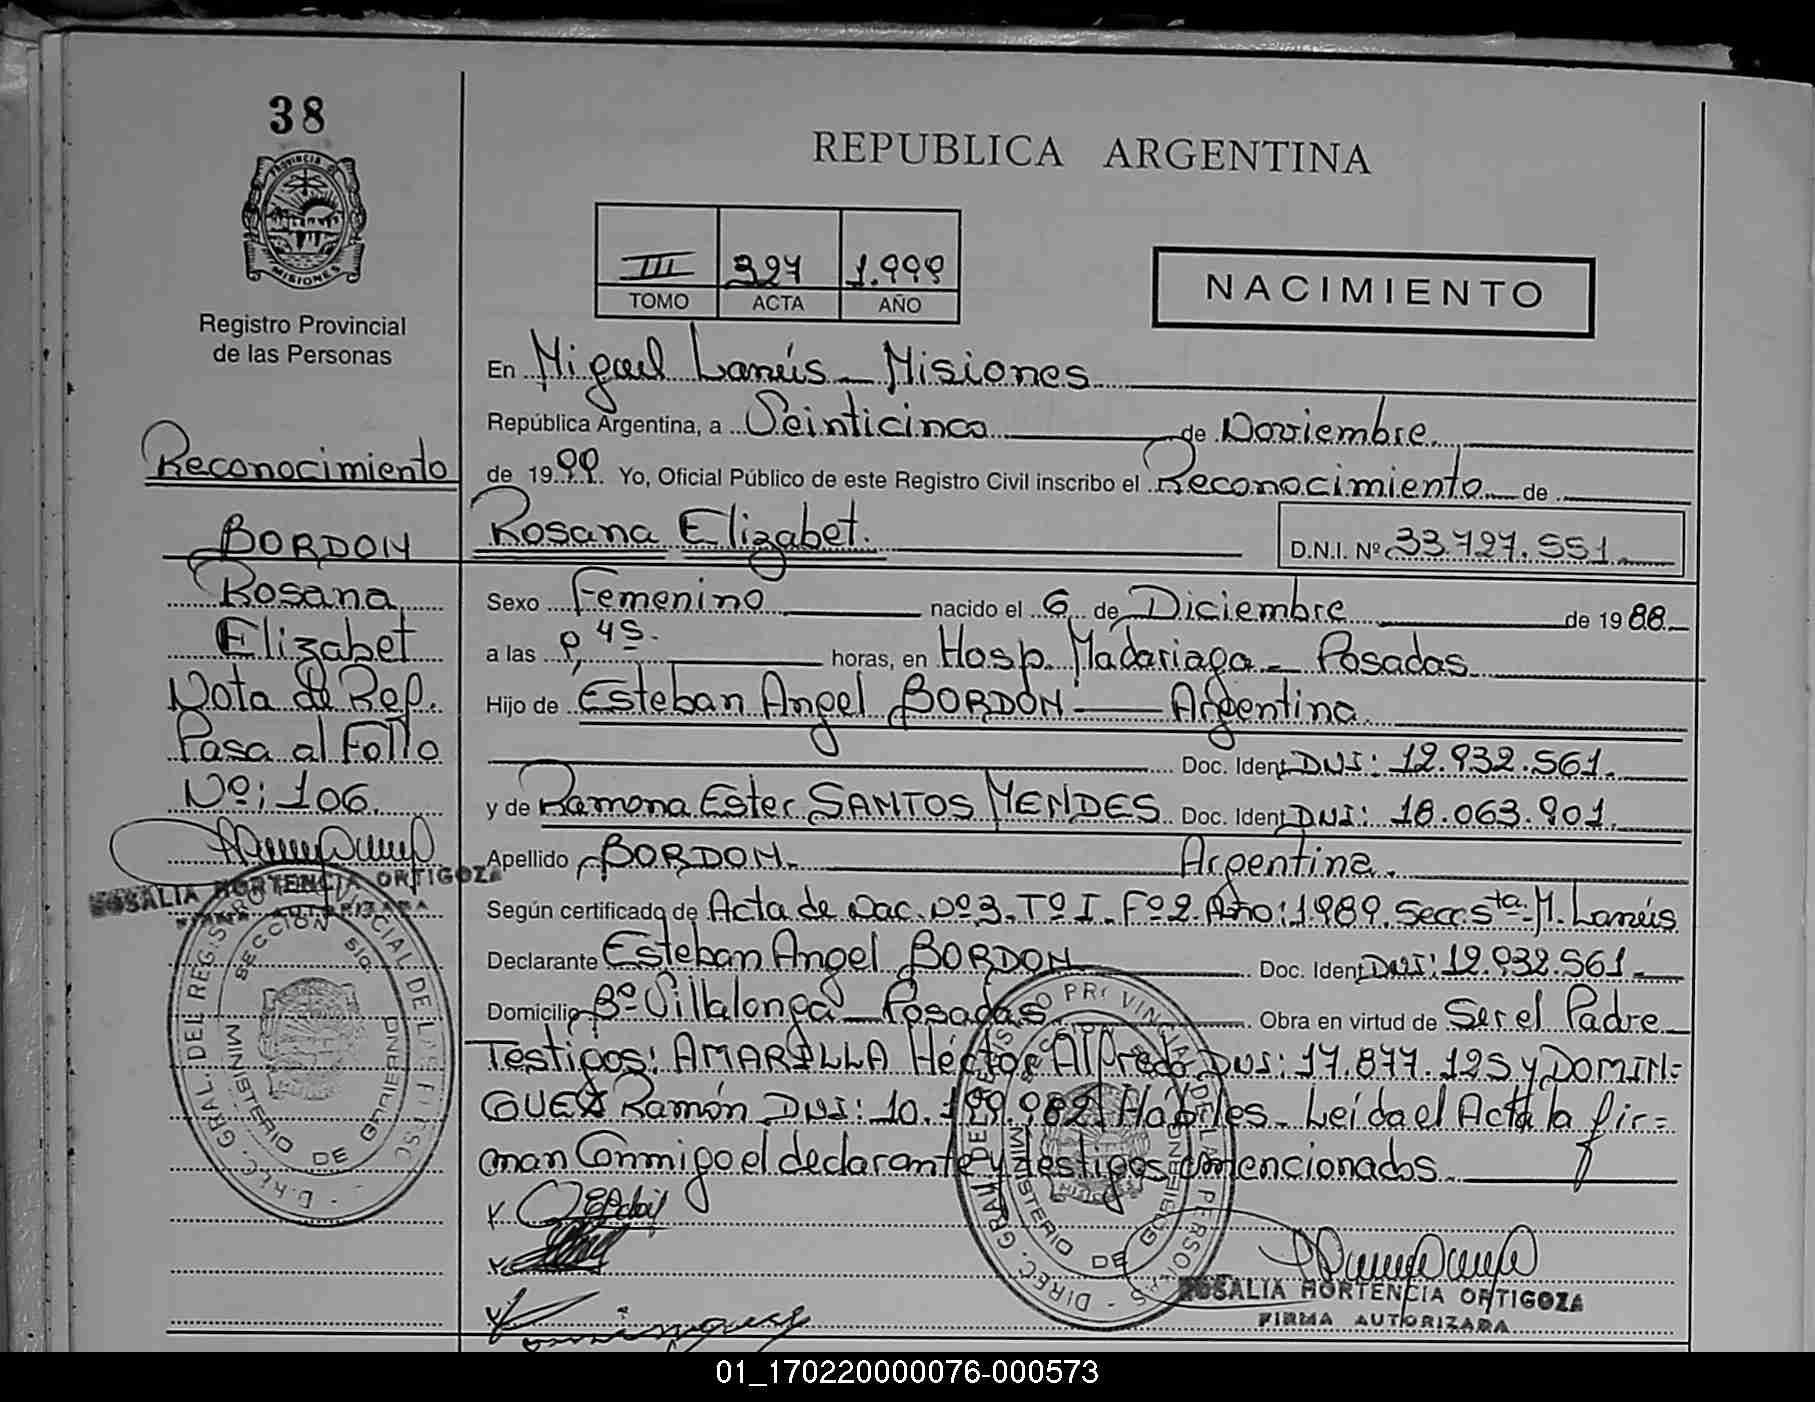 38
PROVINCIA DE
MISIONES
Registro Provincial
de las Personas
REPUBLICA ARGENTINA
III 327 1.999
TOMO ACTA AÑO
NACIMIENTO
En Miguel Lanús - Misiones
República Argentina, a Veinticinco de Noviembre
de 1999. Yo, Oficial Público de este Registro Civil inscribo el Reconocimiento de
Rosana Elizabet.
D.N.I. Nº 33.727.551.
Sexo Femenino nacido el 6 de Diciembre de 1988
a las 9,45. horas, en Hosp. Madariaga - Posadas
Hijo de Esteban Angel BORDON — Argentina
Doc. Ident DNI: 12.932.561.
y de Ramona Ester SANTOS MENDES Doc. Ident DNI: 18.063.901.
Apellido BORDON. Argentina.
Según certificado de Acta de Nac. Nº3. Tº I. Fº2. Año: 1.989. Secc. 5ta. M. Lanús
Declarante Esteban Angel BORDON Doc. Ident DNI: 12.932.561
Domicilio Bº Villalonga - Posadas Obra en virtud de Ser el Padre
Testigos: AMARILLA Héctor Alfredo DNI: 17.877.125 y DOMIN=
GUEZ Ramón DNI: 10.199.982 Hábiles - Leída el Acta la fir=
man Conmigo el declarante y testigos mencionados
ROSALIA HORTENCIA ORTIGOZA
FIRMA AUTORIZADA
Reconocimiento
BORDON
Rosana
Elizabet
Nota de Ref.
Pasa al Folio
Nº: 106.
ROSALIA HORTENCIA ORTIGOZA
FIRMA AUTORIZADA
MINISTERIO DE GOBIERNO
MINISTERIO DE GOBIERNO
01_170220000076-000573